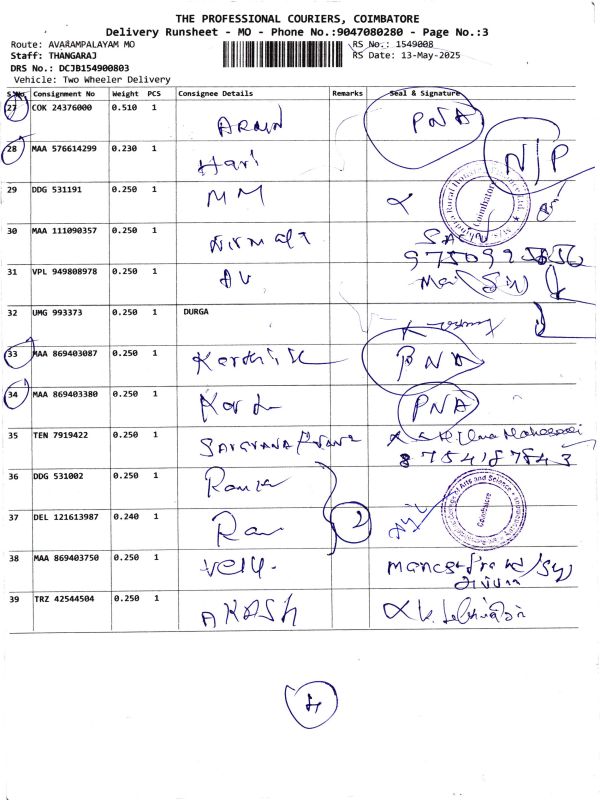 THE PROFESSIONAL COURIERS, COIMBATORE
Delivery Runsheet - MO - Phone No.:9047080280 - Page No.:3
Route: AVARAMPALAYAM MO RS No.: 1549008
Staff: THANGARAJ RS Date: 13-May-2025
DRS No.: DCJB154900803
Vehicle: Two Wheeler Delivery
S.No. Consignment No Weight PCS Consignee Details Remarks Seal & Signature
27 COK 24376000 0.510 1 ARUN PNA
28 MAA 576614299 0.230 1 Hari N/P
29 DDG 531191 0.250 1 MM
Coimbatore
30 MAA 111090357 0.250 1 Nirmala
31 VPL 949808978 0.250 1 AV
32 UMG 993373 0.250 1 DURGA
33 MAA 869403087 0.250 1 Karthik PNA
34 MAA 869403380 0.250 1 PNA
35 TEN 7919422 0.250 1 Uma Maheswari
8754187843
36 DDG 531002 0.250 1
of Arts and Science
Coimbatore
37 DEL 121613987 0.240 1 Ram 2
38 MAA 869403750 0.250 1 velu.
39 TRZ 42544504 0.250 1 AKASH